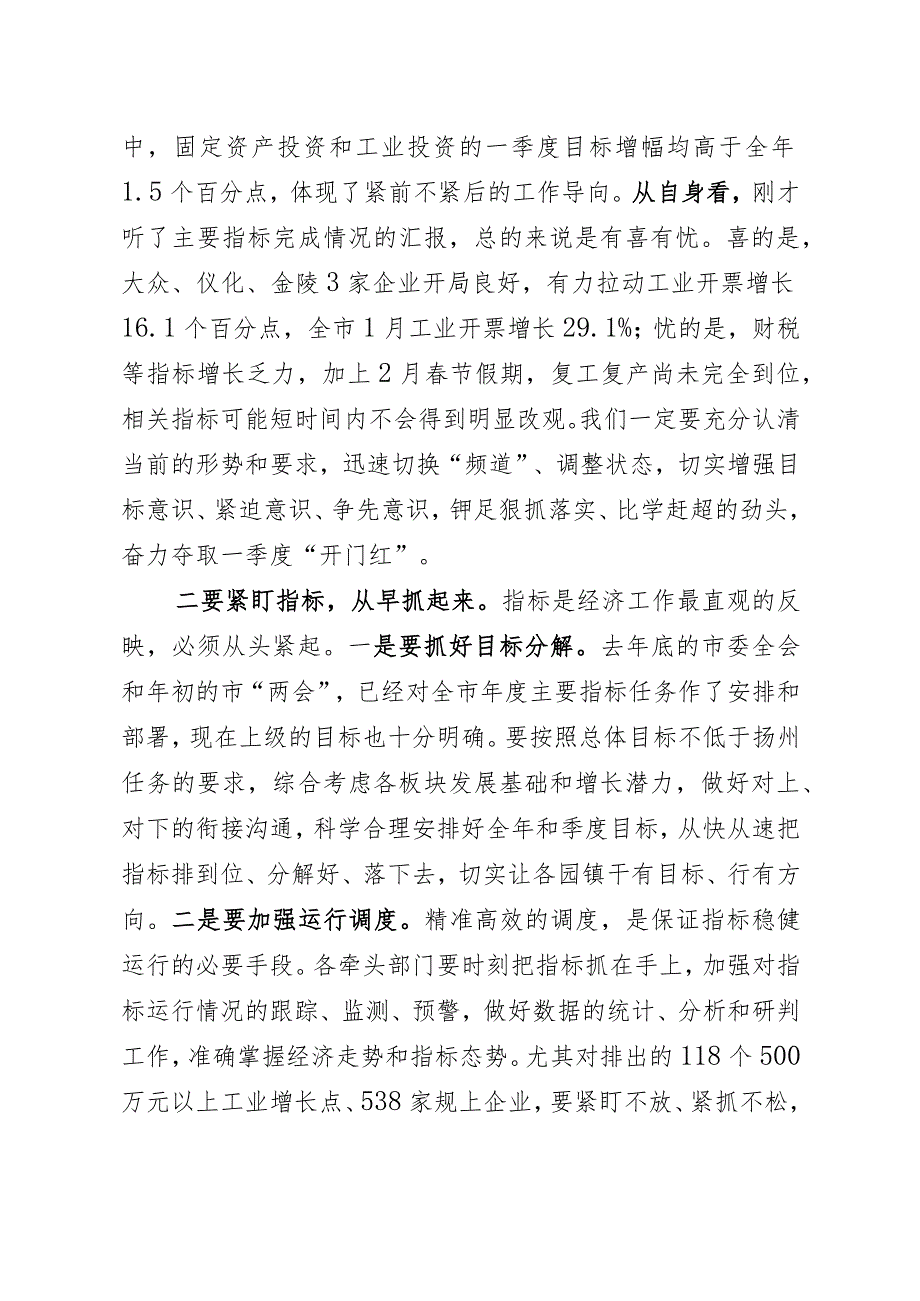 中，固定资产投资和工业投资的一季度目标增幅均高于全年
1.5 个百分点，体现了紧前不紧后的工作导向。从自身看，刚才
听了主要指标完成情况的汇报，总的来说是有喜有忧。喜的是，
大众、仪化、金陵 3 家企业开局良好，有力拉动工业开票增长
16.1 个百分点，全市 1 月工业开票增长 29.1%；忧的是，财税
等指标增长乏力，加上 2 月春节假期，复工复产尚未完全到位，
相关指标可能短时间内不会得到明显改观。我们一定要充分认清
当前的形势和要求，迅速切换“频道”、调整状态，切实增强目
标意识、紧迫意识、争先意识，钾足狠抓落实、比学赶超的劲头，
奋力夺取一季度“开门红”。
二要紧盯指标，从早抓起来。指标是经济工作最直观的反
映，必须从头紧起。一是要抓好目标分解。去年底的市委全会
和年初的市“两会”，已经对全市年度主要指标任务作了安排和
部署，现在上级的目标也十分明确。要按照总体目标不低于扬州
任务的要求，综合考虑各板块发展基础和增长潜力，做好对上、
对下的衔接沟通，科学合理安排好全年和季度目标，从快从速把
指标排到位、分解好、落下去，切实让各园镇干有目标、行有方
向。二是要加强运行调度。精准高效的调度，是保证指标稳健
运行的必要手段。各牵头部门要时刻把指标抓在手上，加强对指
标运行情况的跟踪、监测、预警，做好数据的统计、分析和研判
工作，准确掌握经济走势和指标态势。尤其对排出的 118 个 500
万元以上工业增长点、538 家规上企业，要紧盯不放、紧抓不松，